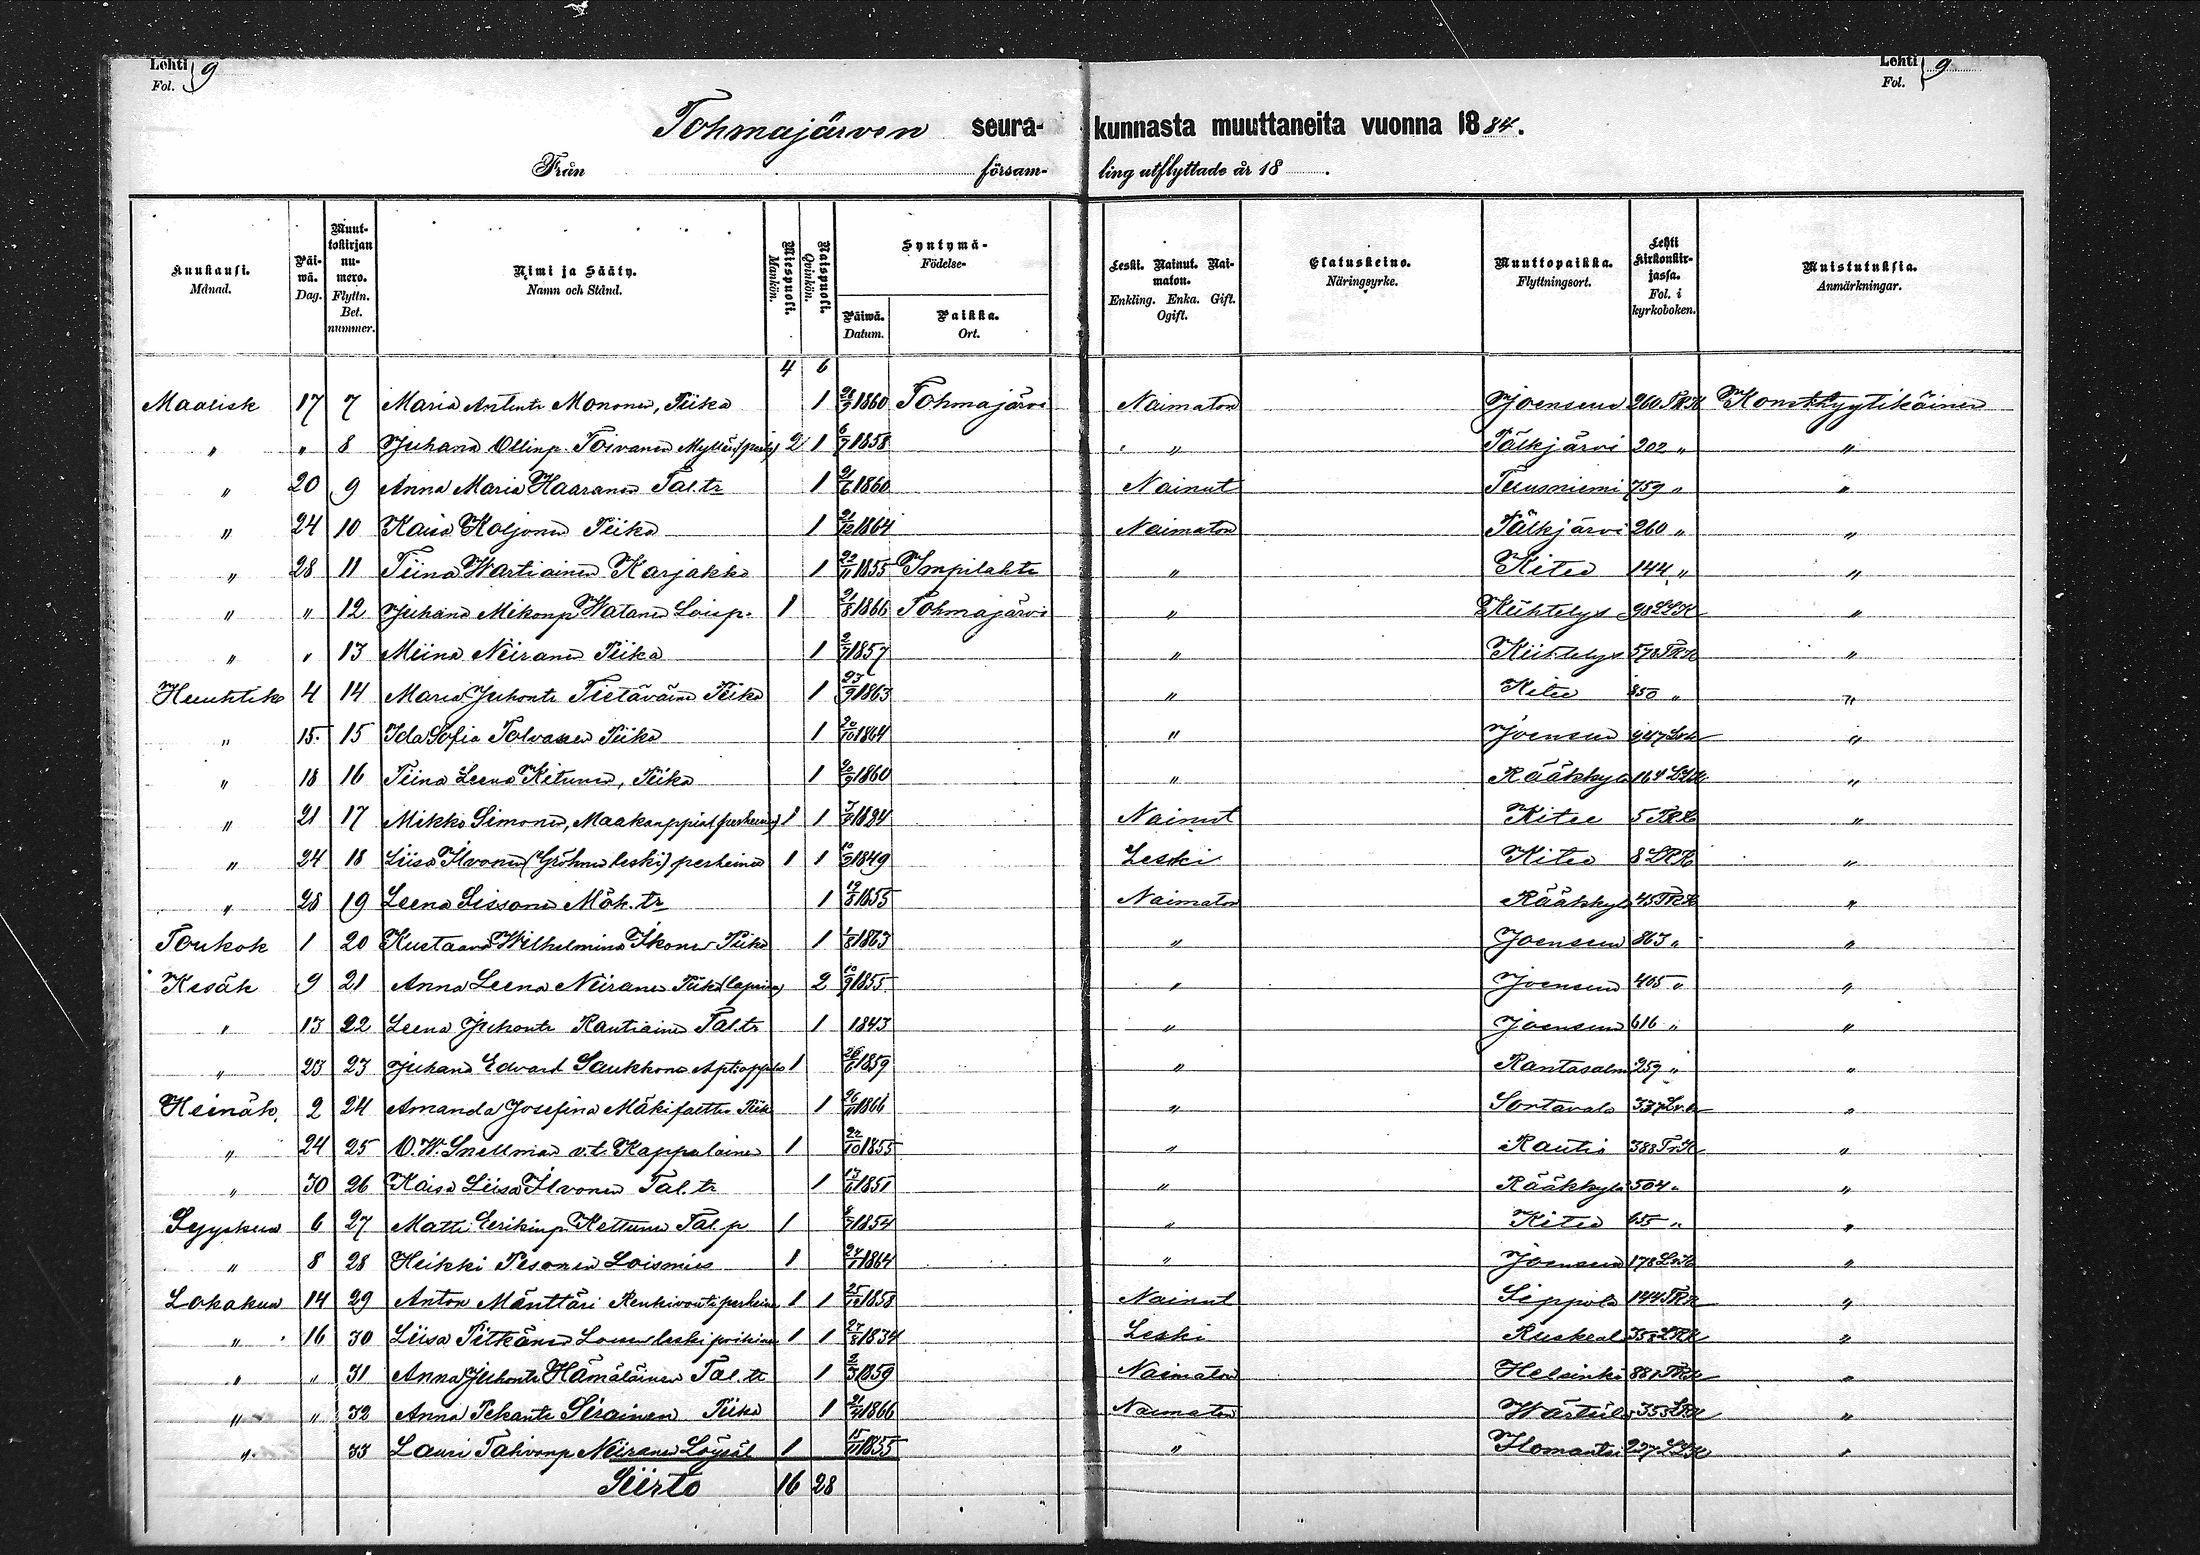 Lehti } 9
Fol.
Lehti } 9
Fol.
Tohmajärven seura- kunnasta muuttaneita vuonna 1884.
Från försam- ling utflyttade år 18 .
Kuukausi. Månad.
Päiwä. Dag.
Muuttokirjan numero. Flyttn. Bet. nummer.
Nimi ja Sääty. Namn och Stånd.
Miespuoli. Mankön.
Naispuoli. Qvinkön.
Syntymä- Födelse-
Päiwä. Datum.
Paikka. Ort.
Leski. Nainut. Naimaton. Enkling. Enka. Gift. Ogift.
Elatuskeino. Näringsyrke.
Muuttopaikka. Flyttningsort.
Lehti kirkonkirjassa. Fol. i kyrkoboken.
Muistutuksia. Anmärkningar.
4 6
Maalisk 17 7 Maria Antintr Mononen, Piika 1 1860 Tohmajärvi Naimaton Joensuu 260 Konskyytikäinen
" " 8 Juhana Ollinp. Toivanen 2 1 1858 " Pälkjärvi 202 " "
" 20 9 Anna Maria Haaranen Tal.tr 1 1860 Nainut Tuusniemi 759 " "
" 24 10 Kaisa Koljonen Piika 1 21/12 1864 Naimaton Pälkjärvi 260 " "
" 28 11 Tiina Wartiainen Karjakko 1 1855 Impilahti " Kitee 144 " "
" " 12 Juhana Mikonp Watanen Loisp. 1 21/8 1866 Tohmajärvi " Kiihtelys 98 LLK "
" " 13 Miina Neiranen Piika 1 1857 " Kiihtelys 578 "
Huuhtik 4 14 Maria Juhontr Tietäväinen Piika 1 23/9 1863 " Kitee 850 " "
" 15 15 Ida Sofia Tolvanen Piika 1 20/10 1864 " Joensuu "
" 18 16 Tiina Leena Ketunen, Piika 1 1860 " Rääkkylä 164 "
" 21 17 Mikko Simonen, Maakauppias (perheineen) 1 1 Nainut Kitee 5 "
" 24 18 Liisa Ilvonen (Gröhnin leski) perheineen 1 1 1849 Leski Kitee 8 LRK "
" 28 19 Leena Sissonen Mäk.tr 1 1855 Naimaton Rääkkylä 45 "
Toukok 1 20 Kustaava Wilhelmina Ikonen Piika 1 1/8 1863 " Joensuu 863 " "
Kesäk 9 21 Anna Leena Neiranen Piika 2 10/9 1855 " Joensuu 405 " "
" 13 22 Leena Juhontr Rautiainen Tal.tr 1 1843 " Joensuu 616 " "
" 23 23 Juhana Edvard Saukkonen 1 1859 " Rantasalmi 259 " "
Heinäk. 2 24 Amanda Josefina Piika 1 1866 " Sortavala "
" 24 25 O. W. Snellman v.t. Kappalainen 1 22/10 1855 " Rautio 388 "
" 30 26 Kaisa Liisa Ilvonen Tal.tr 1 1851 " Rääkkylä 504 " "
Syyskuu 6 27 Matti Eerikinp Kettunen Tal.p 1 1854 " Kitee 655 " "
" 8 28 Heikki Pesonen Loismies 1 1864 " Joensuu 178 "
Lokakuu 14 29 Anton Mänttäri Renkivouti perheineen 1 1 1858 Nainut Sippola 144 "
" 16 30 Liisa Pitkänen leski poikineen 1 1 1834 Leski Ruskeala 358 "
" " 31 Anna Juhontr Hämäläinen Tal.tr 1 1859 Naimaton Helsinki 881 "
" " 32 Anna Pekantr Sirainen Piika 1 1866 Naimaton Wärtsilä 353 "
" 33 Lauri Tahvonp Neiranen 1 15/11 1855 " Ilomantsi "
Siirto 16 28